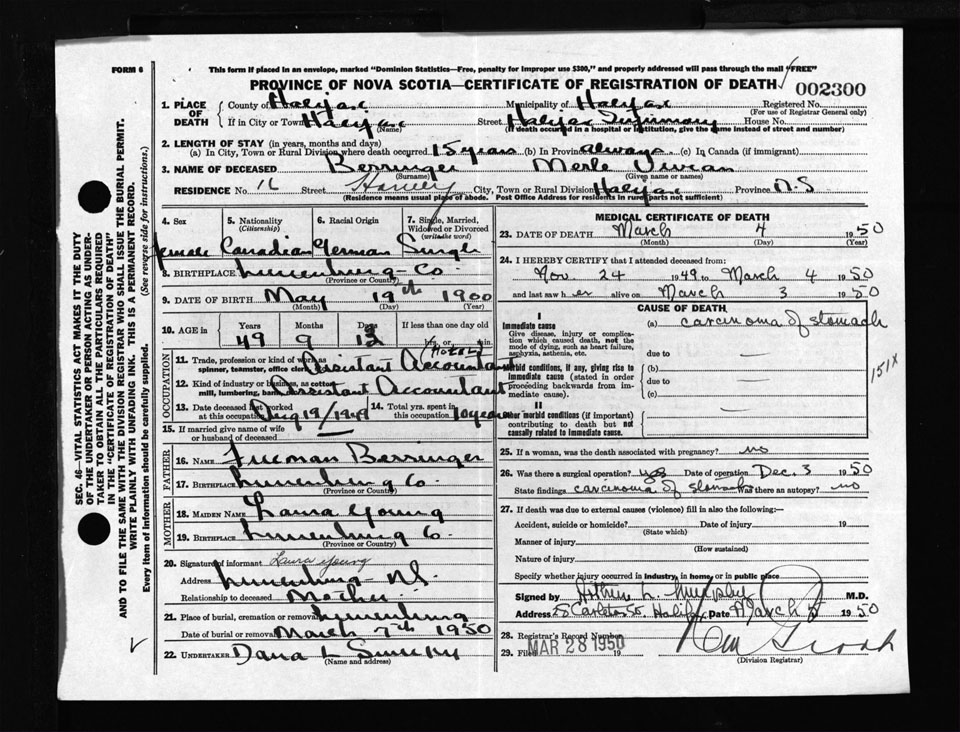 FORM 6
This form if placed in an envelope, marked "Dominion Statistics—Free, penalty for improper use $300," and properly addressed will pass through the mail "FREE"
PROVINCE OF NOVA SCOTIA—CERTIFICATE OF REGISTRATION OF DEATH
002300
1. PLACE OF DEATH
County of Halifax Municipality of Halifax Registered No.
(For use of Registrar General only)
If in City or Town Halifax Street Halifax Infirmary House No.
(Name) (If death occurred in a hospital or institution, give the name instead of street and number)
2. LENGTH OF STAY (in years, months and days)
(a) In City, Town or Rural Division where death occurred 15 years (b) In Province always (c) In Canada (if immigrant)
3. NAME OF DECEASED Berringer Merle Vivian
(Surname) (Given name or names)
RESIDENCE No. 16 Street Harvey City, Town or Rural Division Halifax Province N.S
(Residence means usual place of abode. Post Office Address for residents in rural parts not sufficient)
4. Sex Female
5. Nationality (Citizenship) Canadian
6. Racial Origin German
7. Single, Married, Widowed or Divorced (write the word) Single
8. BIRTHPLACE Lunenburg Co.
(Province or County)
9. DATE OF BIRTH May 19th 1900
(Month) (Day) (Year)
10. AGE in Years Months Days If less than one day old
49 9 13 hrs. or min.
11. Trade, profession or kind of work as spinner, teamster, office clerk Assistant Accountant (Hotel)
12. Kind of industry or business, as cotton mill, lumbering, bank Assistant Accountant
13. Date deceased last worked at this occupation Aug 19/1949
14. Total yrs. spent in this occupation 10 years
OCCUPATION
15. If married give name of wife or husband of deceased
FATHER
16. NAME Freeman Berringer
17. BIRTHPLACE Lunenburg Co.
(Province or Country)
MOTHER
18. MAIDEN NAME Laura Young
19. BIRTHPLACE Lunenburg Co
(Province or Country)
20. Signature of informant Laura Young
Address Lunenburg NS.
Relationship to deceased Mother
21. Place of burial, cremation or removal Lunenburg
Date of burial or removal March 7th 1950
22. UNDERTAKER Dana L Sweeny
(Name and address)
MEDICAL CERTIFICATE OF DEATH
23. DATE OF DEATH March 4 1950
(Month) (Day) (Year)
24. I HEREBY CERTIFY that I attended deceased from:
Nov. 24 1949 to March 4 1950
and last saw her alive on March 3 1950
CAUSE OF DEATH
I
Immediate cause
Give disease, injury or complication which caused death, not the mode of dying, such as heart failure, asphyxia, asthenia, etc.
(a) carcinoma of stomach
due to —
Morbid conditions, if any, giving rise to immediate cause (stated in order proceeding backwards from immediate).
(b)
due to —
(c)
151X
II
Other morbid conditions (if important) contributing to death but not causally related to immediate cause.
25. If a woman, was the death associated with pregnancy? no
26. Was there a surgical operation? yes Date of operation Dec. 3 1950
State findings carcinoma of stomach Was there an autopsy? no
27. If death was due to external causes (violence) fill in also the following:—
Accident, suicide or homicide? Date of injury 19
(State which)
Manner of injury
(How sustained)
Nature of injury
Specify whether injury occurred in industry, in home, or in public place
Signed by M.D.
Address 28 Carleton St. Halifax Date March 8 1950
28. Registrar's Record Number
29. Filed MAR 28 1950 19
(Division Registrar)
SEC. 46—VITAL STATISTICS ACT MAKES IT THE DUTY
OF THE UNDERTAKER OR PERSON ACTING AS UNDER-
TAKER TO OBTAIN ALL THE PARTICULARS REQUIRED
IN THE "CERTIFICATE OF REGISTRATION OF DEATH"
AND TO FILE THE SAME WITH THE DIVISION REGISTRAR WHO SHALL ISSUE THE BURIAL PERMIT.
WRITE PLAINLY WITH UNFADING INK. THIS IS A PERMANENT RECORD.
Every item of information should be carefully supplied. (See reverse side for instructions.)